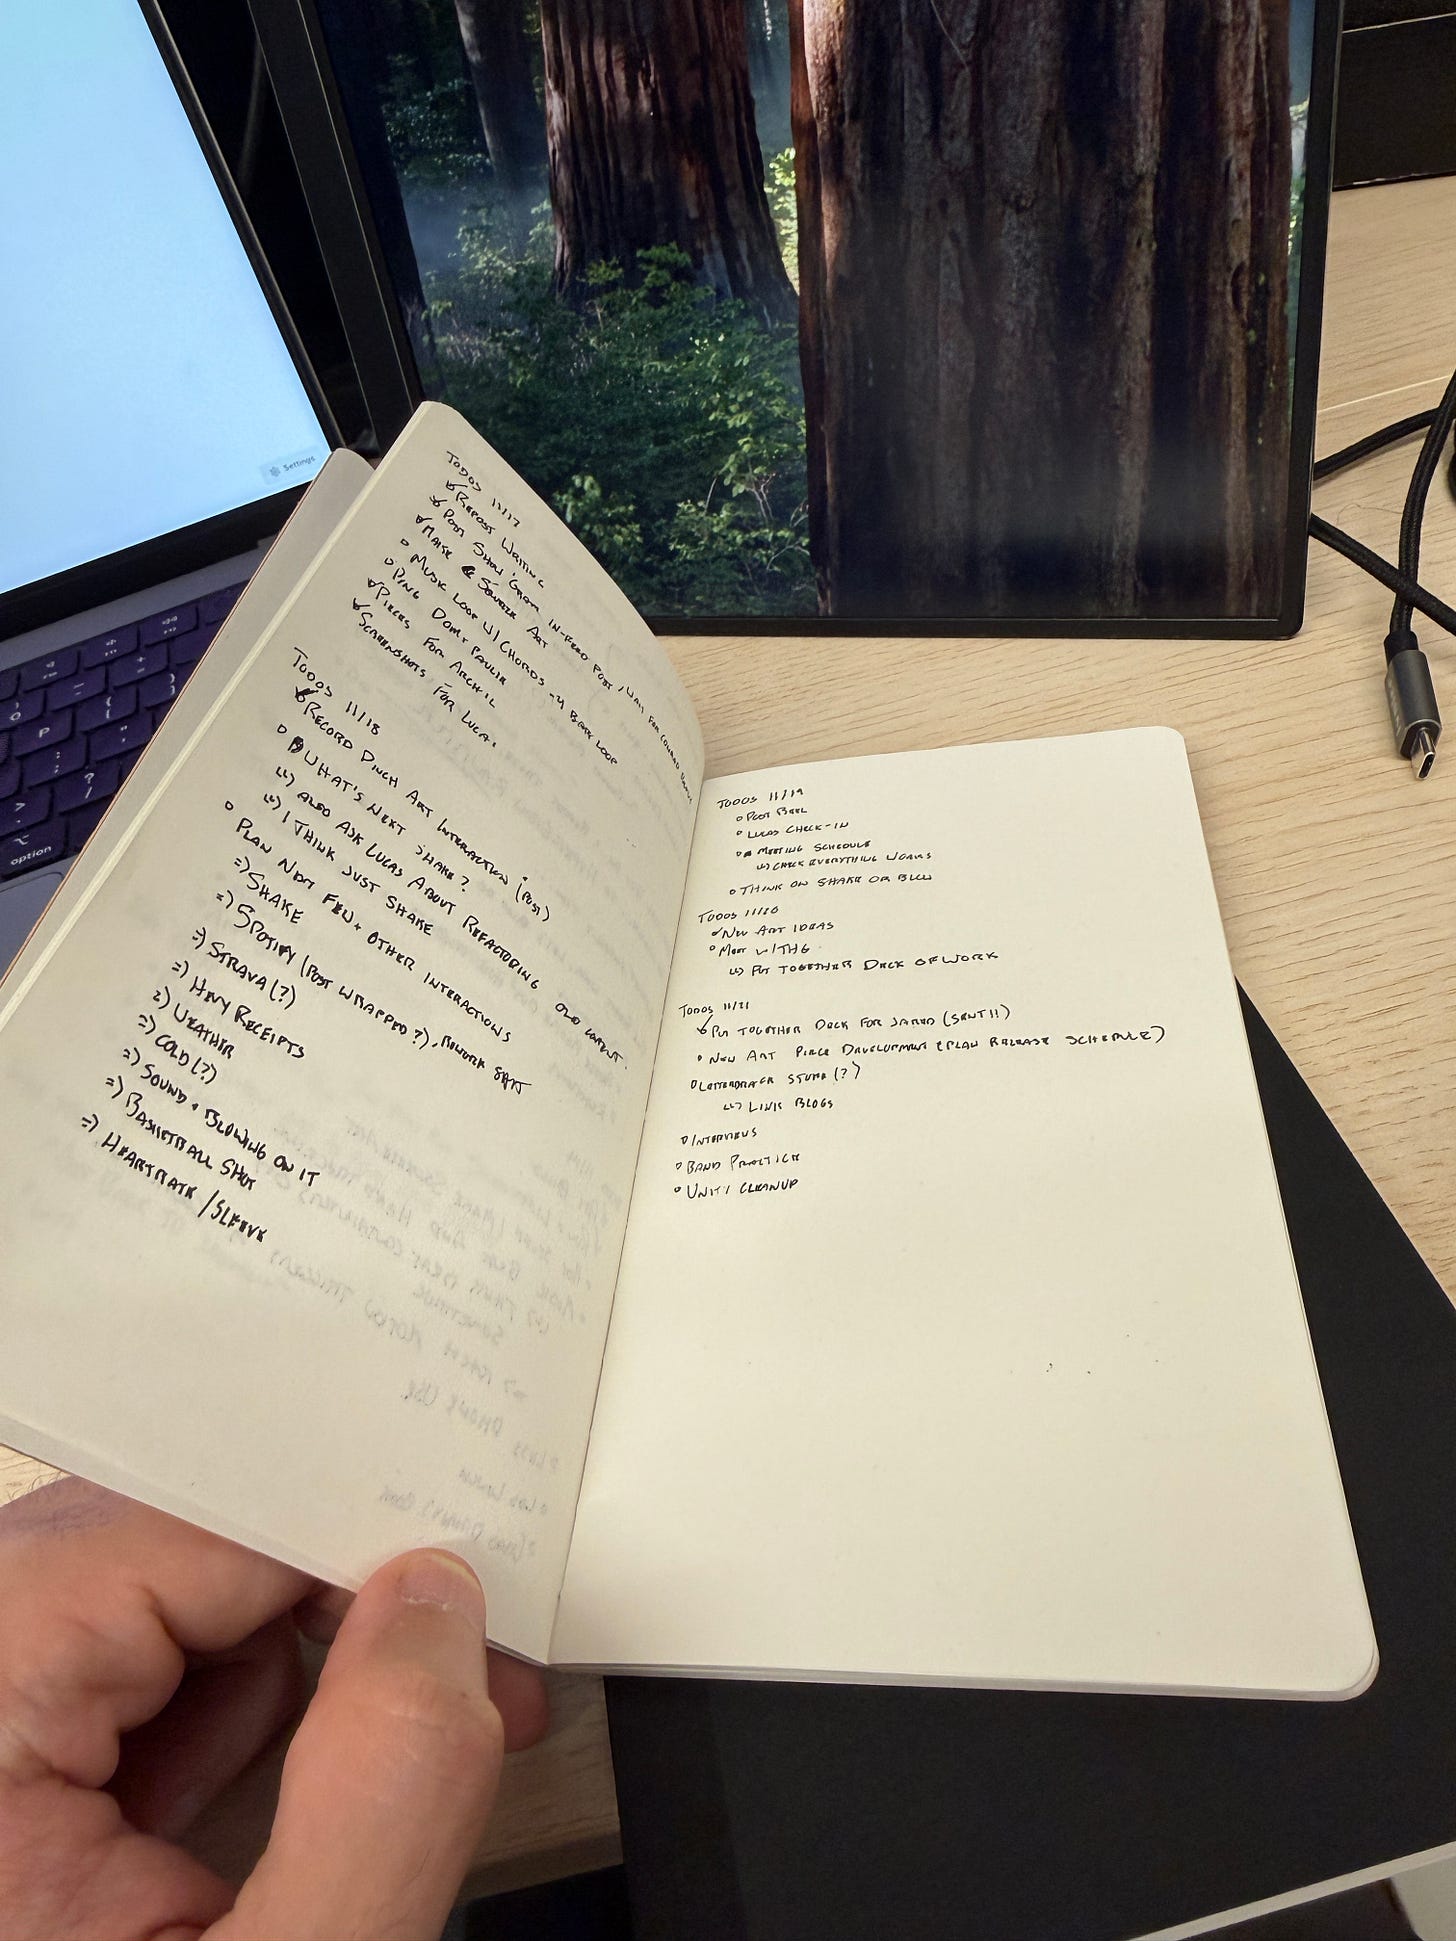 TODOS 11/17
REPOST WRITING
POST SHOW GRAM IN-FEED POST / WAIT FOR
MAKE SQUEEZE ART
MUSIC LOOP W/ CHORDS - 4 BAR LOOP
PING DOM + PAULIE
PIECES FOR ARCHIL
SCREENSHOTS FOR LUCAS
TODOS 11/18
RECORD PINCH ART INTERACTION (POST)
WHAT'S NEXT SHAKE?
↳) ALSO ASK LUCAS ABOUT REFACTORING OLD CONTENT
↳) I THINK JUST SHAKE
PLAN NEXT FEW + OTHER INTERACTIONS
=) SHAKE
=) SPOTIFY (POST WRAPPED?), REWORK
=) STRAVA (?)
=) HEVY RECEIPTS
=) WEATHER
=) COLD (?)
=) SOUND + BLOWING ON IT
=) BASKETBALL SHOT
=) HEARTRATE / SLEEVE
TODOS 11/19
POST REEL
LUCAS CHECK-IN
MEETING SCHEDULE
↳) CHECK EVERYTHING WORKS
THINK ON SHAKE OR BLOW
TODOS 11/20
NEW ART IDEAS
MEET W/ THG
↳) PUT TOGETHER DECK OF WORK
TODOS 11/21
PUT TOGETHER DECK FOR JARED (SENT!!)
NEW ART PIECE DEVELOPMENT (PLAN RELEASE SCHEDULE)
LETTERSTACK STUFF (?)
↳) LINK BLOGS
INTERVIEWS
BAND PRACTICE
UNITY CLEANUP
Settings
option